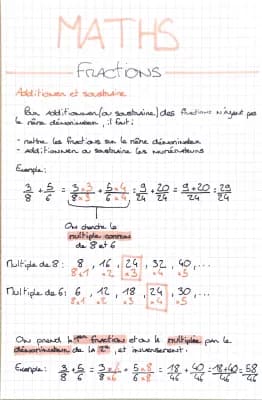 MATHS
FRACTIONS
Additionner et soustraire
Pour additionner (ou soustraire) des fractions n'ayant pas
le même dénominateur, il faut :
- mettre les fractions sur le même dénominateur
- additionner ou soustraire les numérateurs
Exemple :
3/8 + 5/6 = 3×3/8×3 + 5×4/6×4 = 9/24 + 20/24 = 9+20/24 = 29/24
On cherche le
multiple commun
de 8 et 6
Multiple de 8 : 8, 16, 24, 32, 40, ...
8×1 ×2 ×3 ×4 ×5
Multiple de 6 : 6, 12, 18, 24, 30, ...
6×1 ×2 ×3 ×4 ×5
On prend la 1ère fraction et on le multiplie par le
dénominateur de la 2e et inversement.
Exemple : 3/8 + 5/6 = 3×6/8×6 + 5×8/6×8 = 18/46 + 40/46 = 18+40/46 = 58/46